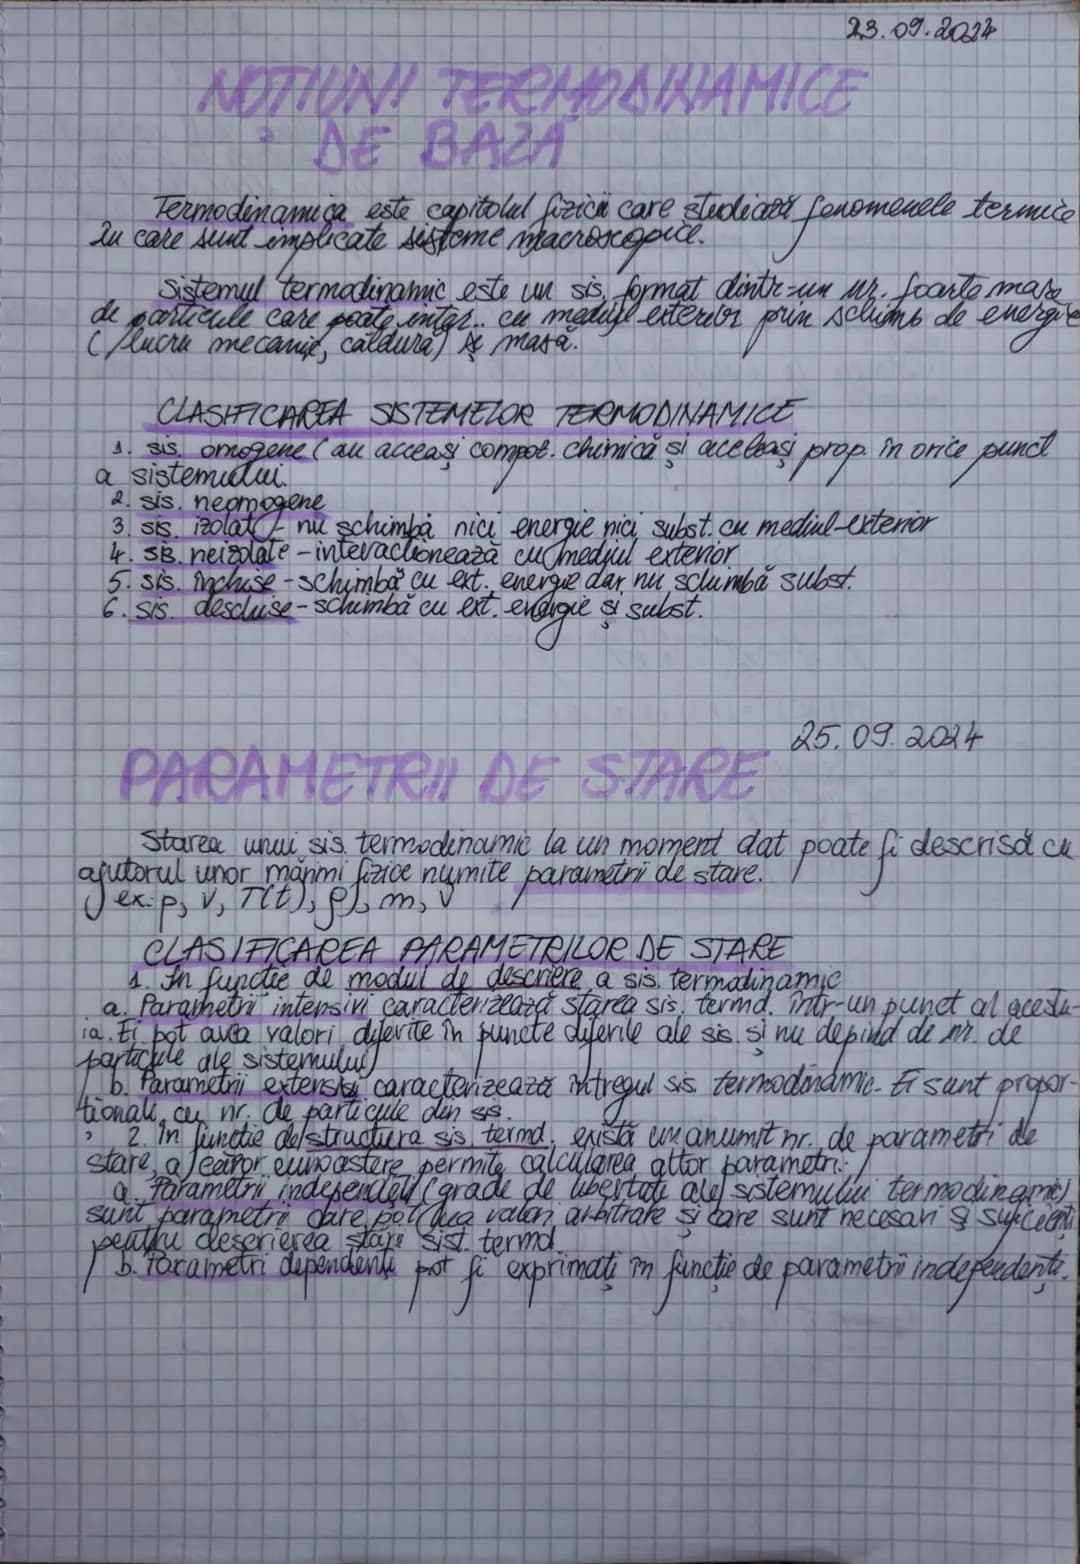 23.09.2024
NOȚIUNI TERMODINAMICE
DE BAZĂ
Termodinamica este capitolul fizicii care studiază fenomenele termice
în care sunt implicate sisteme macroscopice.
Sistemul termodinamic este un sis. format dintr-un nr. foarte mare
de particule care poate inter. cu mediul exterior prin schimb de energie
(lucru mecanic, căldură) și masă.
CLASIFICAREA SISTEMELOR TERMODINAMICE
1. sis. omogene (au aceeași compoz. chimică și aceleași prop. în orice punct
a sistemului.
2. sis. neomogene
3. sis. izolate - nu schimbă nici energie nici subst. cu mediul exterior
4. sis. neizolate - interacționează cu mediul exterior
5. sis. închise - schimbă cu ext. energie dar nu schimbă subst.
6. sis. deschise - schimbă cu ext. energie și subst.
25.09.2024
PARAMETRII DE STARE
Starea unui sis. termodinamic la un moment dat poate fi descrisă cu
ajutorul unor mărimi fizice numite parametrii de stare.
ex: p, V, T(t), ρ, m, ν
CLASIFICAREA PARAMETRILOR DE STARE
1. În funcție de modul de descriere a sis. termodinamic
a. Parametrii intensivi caracterizează starea sis. termd. într-un punct al acestu-
ia. Ei pot avea valori diferite în puncte diferite ale sis. și nu depind de nr. de
particule ale sistemului
b. Parametrii extensivi caracterizează întregul sis. termodinamic. Ei sunt propor-
ționali cu nr. de particule din sis.
2. În funcție de structura sis. termd. există un anumit nr. de parametri de
stare, a căror cunoaștere permite calcularea altor parametri.
a. Parametrii independenți (grade de libertate ale sistemului termodinamic)
sunt parametrii care pot lua valori arbitrare și care sunt necesari și suficienți
pentru descrierea stării sist. termd.
b. Parametri dependenți pot fi exprimați în funcție de parametrii independenți.